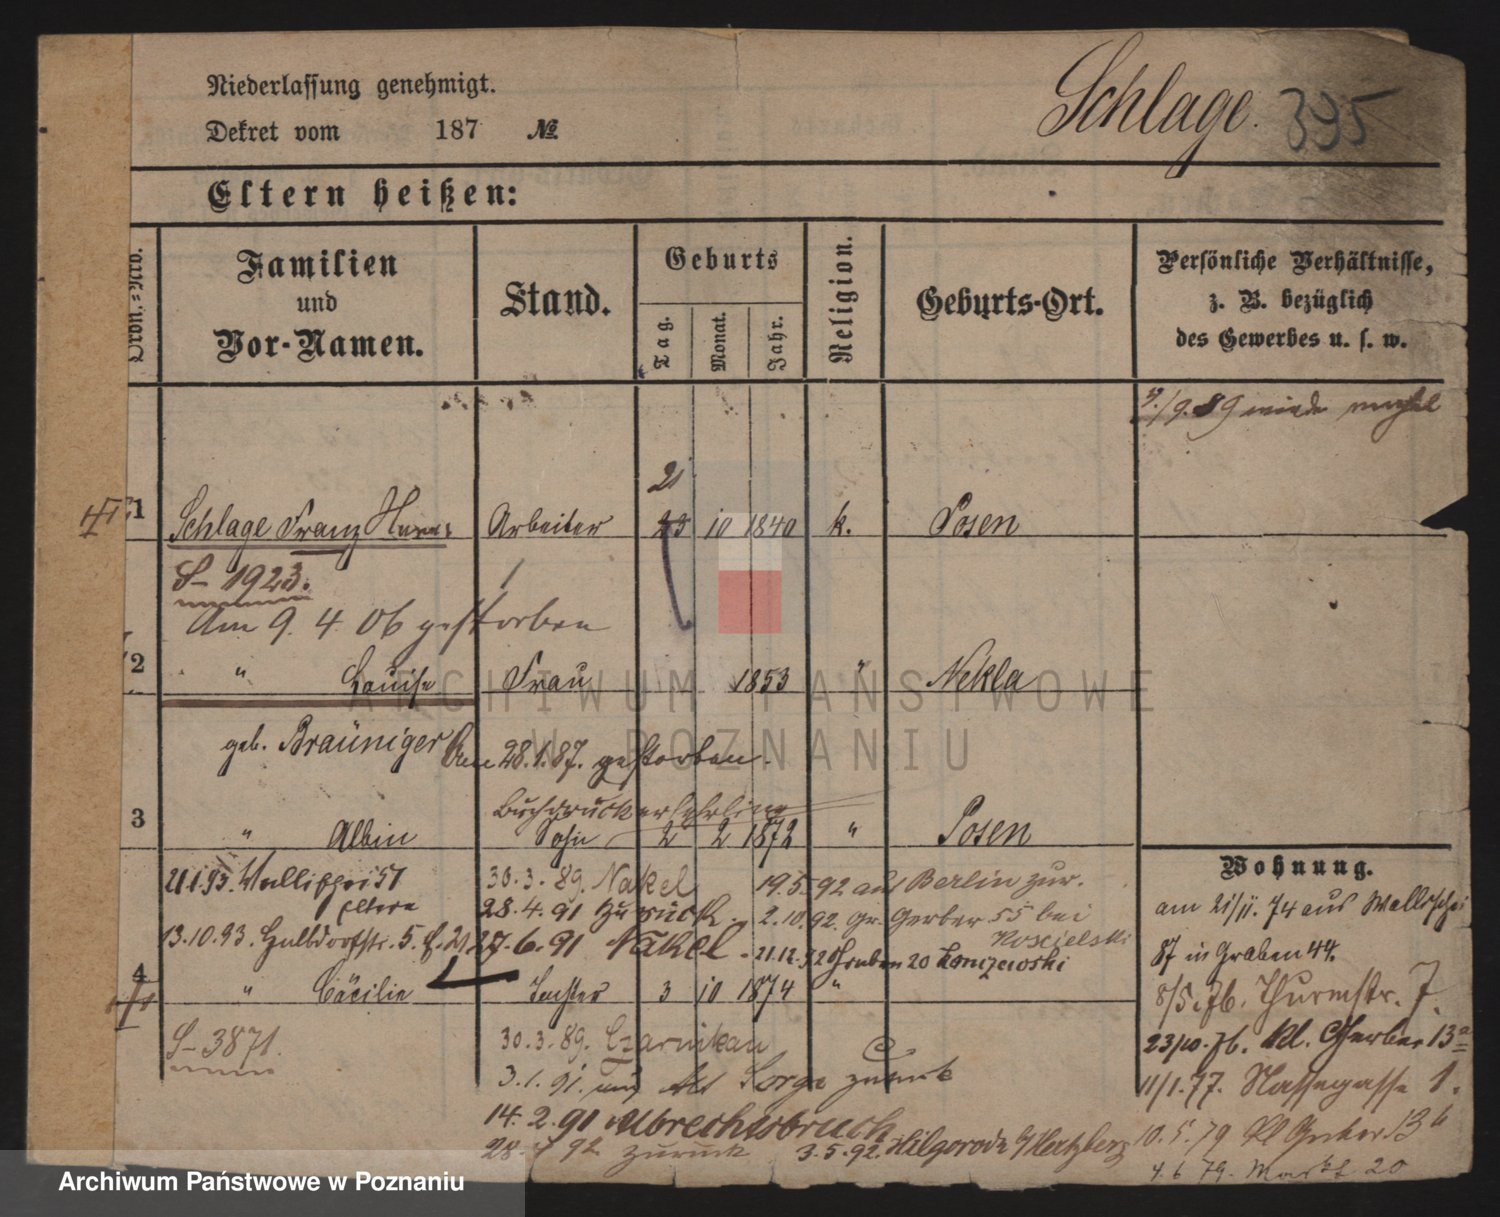 Niederlassung genehmigt.
Dekret vom 187 №
Schlage. 395
Eltern heißen:
Ordn.=Nro.
Familien und Vor-Namen.
Stand.
Geburts
Tag. Monat. Jahr.
Religion.
Geburts-Ort.
Persönliche Verhältnisse, z. B. bezüglich des Gewerbes u. s. w.
1 Schlage Franz Arbeiter 10 1840 k. Posen
21
S- 1923.
Am 9. 4. 06 gestorben
2 " Louise Frau 1853 " Nekla
geb. Bräuniger Am 28.1.87. gestorben.
Buchdruckerlehrling
3 " Albin Sohn 2 2 1872 " Posen
Wohnung.
21.1.93. Wallischei 51
Eltern
30.3.89. Nakel
19.5.92 aus Berlin zur.
28.4.91 zurück.
2.10.92. Gr. Gerber 55 bei
Koscielski
13.10.93. 5.
27.6.91 Nakel
21.12.92 Graben 20
am 21/11. 74 aus Wallischei
87 in Graben 44.
4 " Cäcilie Tochter 3 10 1874 "
8/5. 76. Thurmstr. 7.
S-3871.
30.3.89. Czarnikau
23/10. 76. Kl. Gerber 13a
3.1.91. zurück
11/1.77. Nassegasse 1.
14.2.91 Albrechtsbruch
10.5.79 Kl Gerber 13
28. 92 zurück 3.5.92.
4.6 79. Markt 20
ARCHIWUM PAŃSTWOWE
W POZNANIU
Archiwum Państwowe w Poznaniu